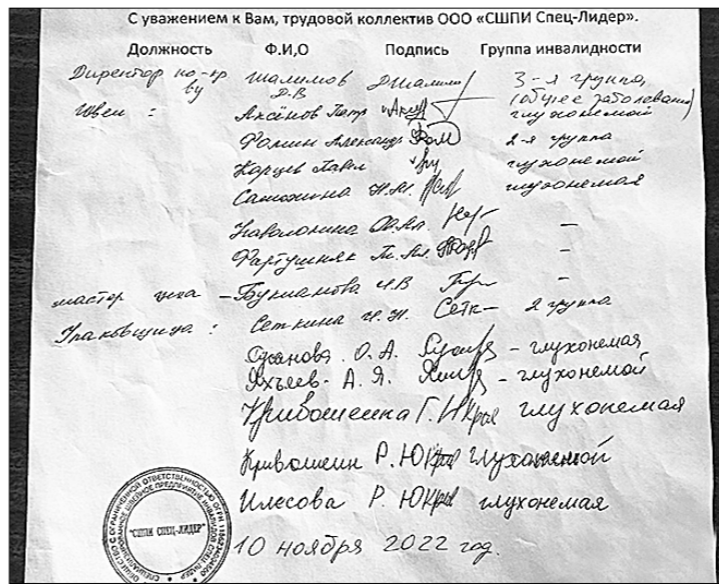 С уважением к Вам, трудовой коллектив ООО «СШПИ Спец-Лидер».
Должность Ф.И,О Подпись Группа инвалидности
Директор по-пр ву Шалимов Д.В ДШалим 3-я группа,
(общее заболевание)
Швеи : Аксёнов Петр глухонемой
Фомин Александр Фом 2-я группа
Корцев Павел глухонемой
Самохина Н.М. глухонемая
Наволокина –
Фартушняк Т. Ал. –
мастер цеха – Букианова Н.В –
Упаковщица : Сеткина Н.Н. Сетк– 2 группа
Суханова О. А. – глухонемая
Яхъев А. Я. – глухонемой
Кривошеина Г. И Крив глухонемая
Кривошеин Р. Ю Крив глухонемой
Илесова Р. Ю глухонемая
10 ноября 2022 год.
"СШПИ СПЕЦ-ЛИДЕР"